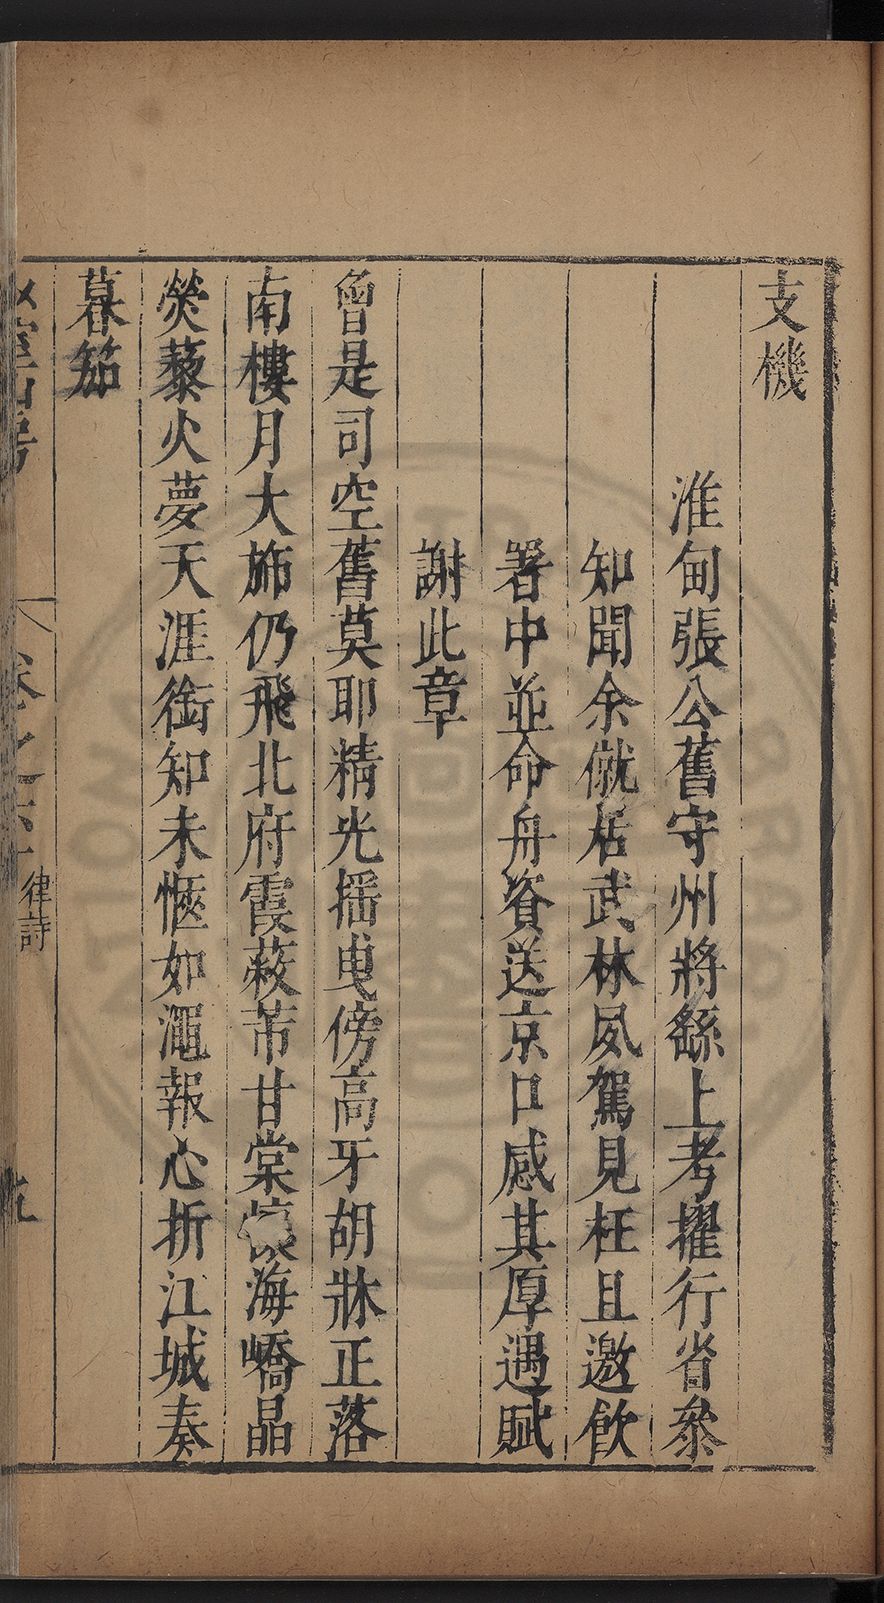 支機
淮甸張公舊守州將繇上考擢行省參
知聞余僦居武林夙駕見枉且邀飲
署中並命舟資送京口感其厚遇賦
謝此章
曾是司空舊莫耶精光搖曳傍高牙胡牀正落
南樓月大斾仍飛北府霞蔽芾甘棠海嶠晶
熒藜火夢天涯銜知未愜如澠報心折江城奏
暮笳
室山房 卷之六十 律詩 九